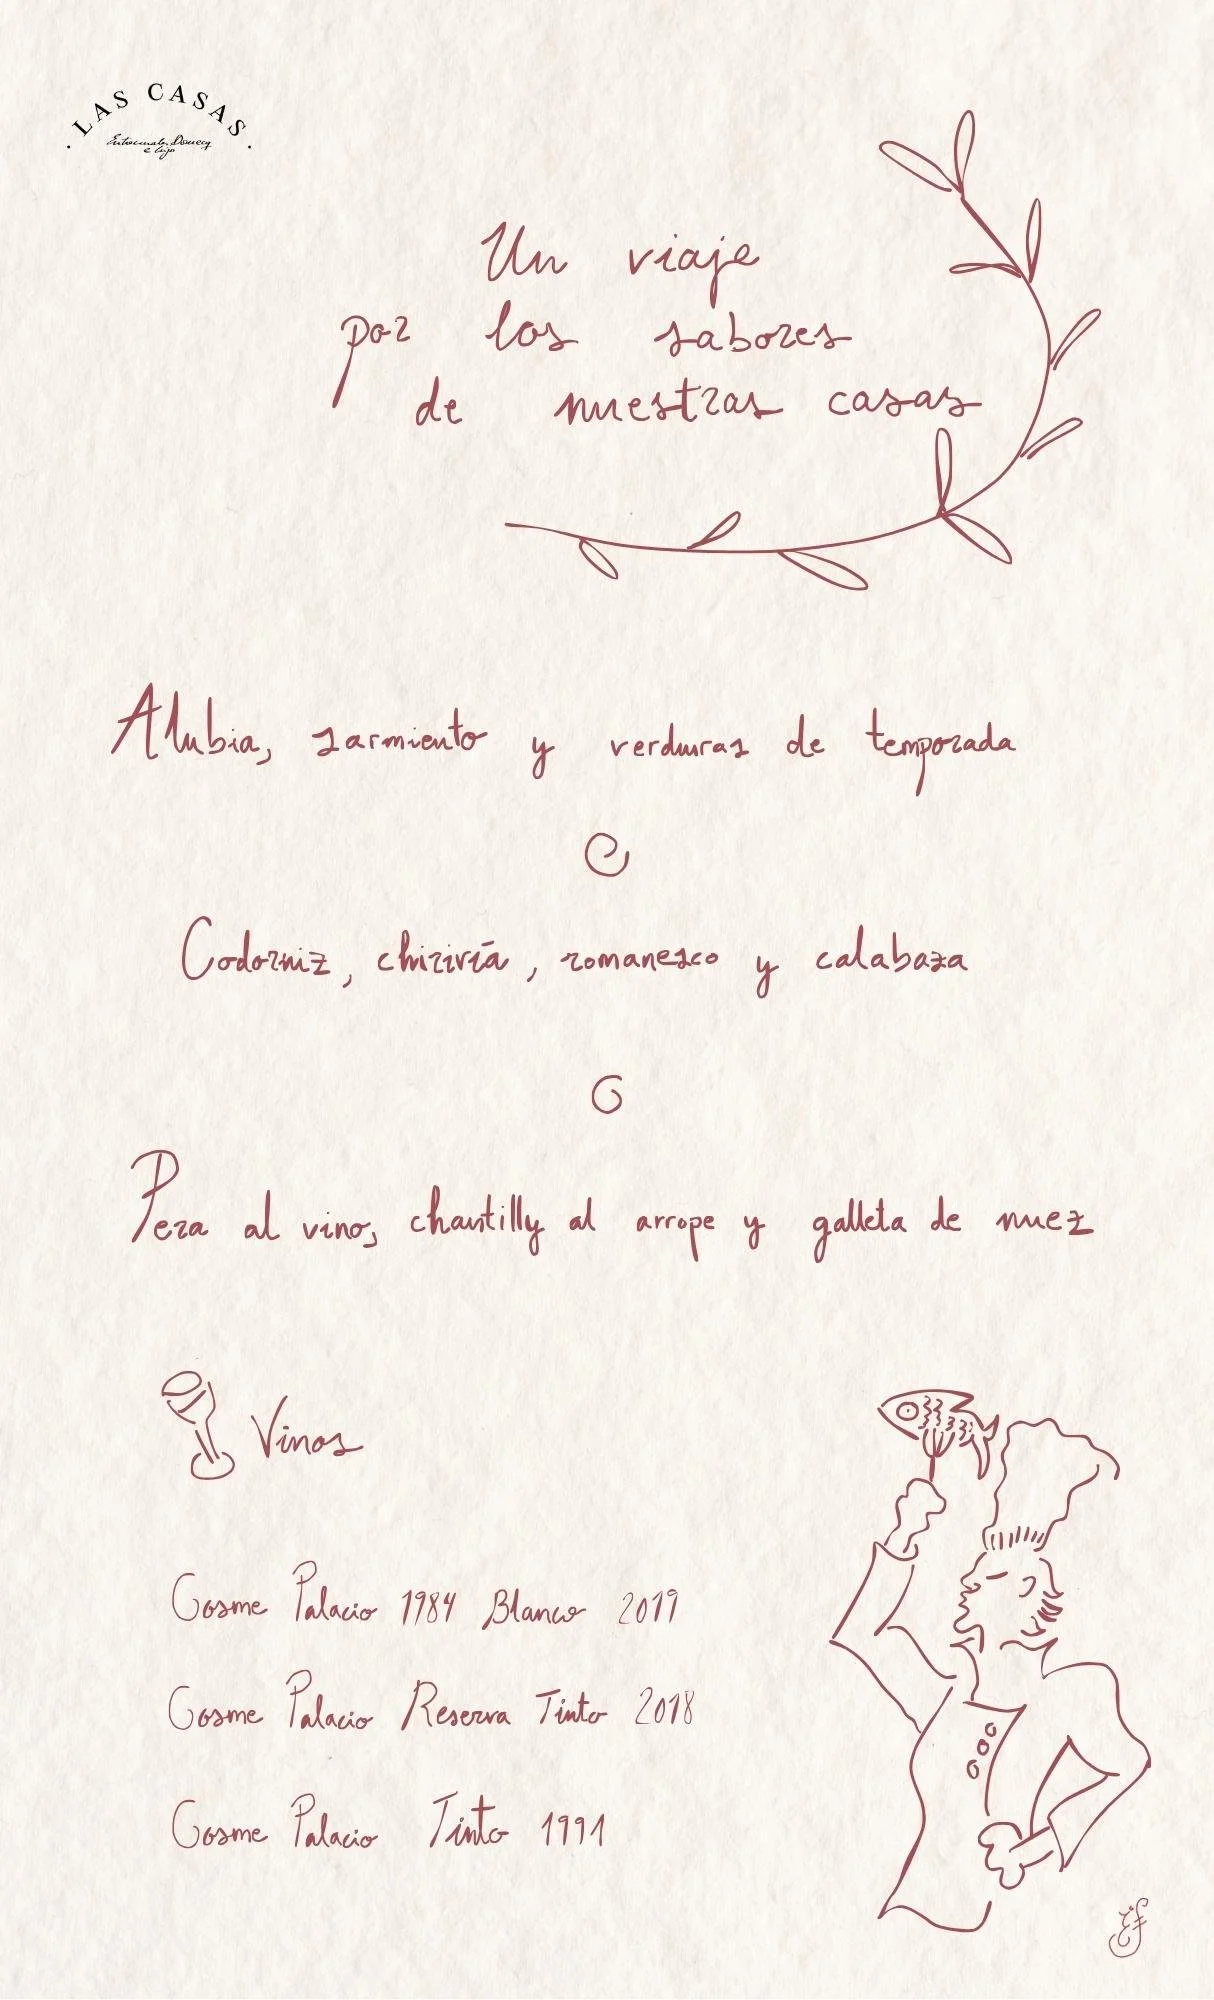 · LAS CASAS ·
Entrecanales Domecq
e hijo
Un viaje
por los sabores
de nuestras casas
Alubia, sarmiento y verduras de temporada
Codorniz, chirivía, romanesco y calabaza
Pera al vino, chantilly al arrope y galleta de nuez
Vinos
Cosme Palacio 1984 Blanco 2019
Cosme Palacio Reserva Tinto 2018
Cosme Palacio Tinto 1991